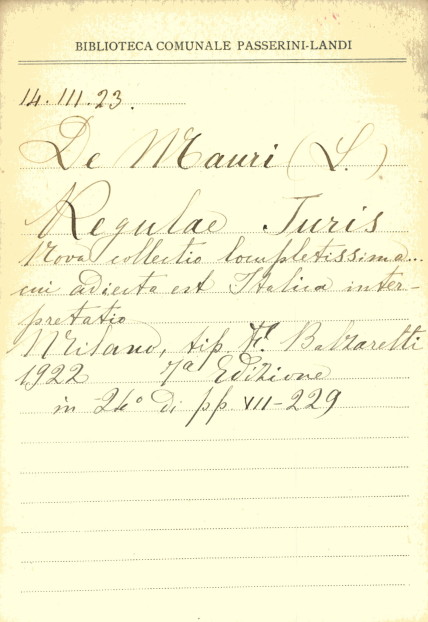 BIBLIOTECA COMUNALE PASSERINI-LANDI
14.III.23.
De Mauri (L.)
Regulae Juris
Nova collectio completissima...
cui adiecta est Italica inter-
pretatio
Milano, tip. Balzaretti
1922 7ª Edizione
in 24° di pp VII-229